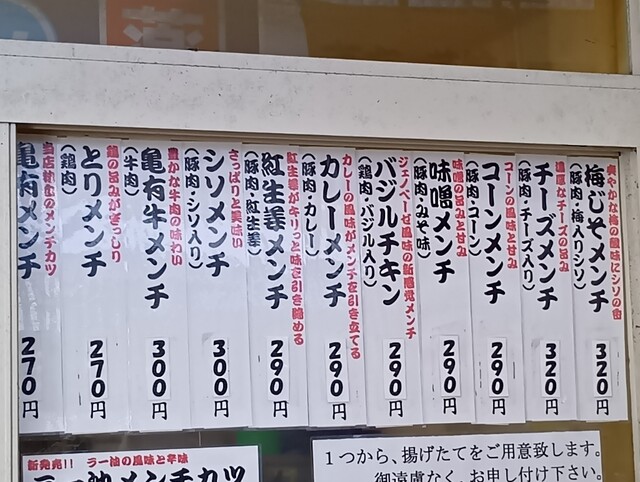 爽やかな梅の風味にシソの香
梅じそメンチ
(豚肉・梅入りシソ)
320円
濃厚なチーズの旨み
チーズメンチ
(豚肉・チーズ入り)
320円
コーンの風味と甘み
コーンメンチ
(豚肉・コーン)
290円
味噌の旨みと甘み
味噌メンチ
(豚肉・みそ味)
290円
ジェノベーゼ風味の新感覚メンチ
バジルチキン
(鶏肉・バジル入り)
290円
カレーの風味がメンチを引き立てる
カレーメンチ
(豚肉・カレー)
290円
紅生姜がキリッと味を引き締める
紅生姜メンチ
(豚肉・紅生姜)
290円
さっぱりと美味い
シソメンチ
(豚肉・シソ入り)
300円
豊かな牛肉の味わい
亀有牛メンチ
(牛肉)
300円
鶏の旨みがぎっしり
とりメンチ
(鶏肉)
270円
当店自慢のメンチカツ
亀有メンチ
270円
新発売!! ラー油の風味と辛味
ラー油メンチカツ
1つから、揚げたてをご用意致します。
御遠慮なく、お申し付け下さい。